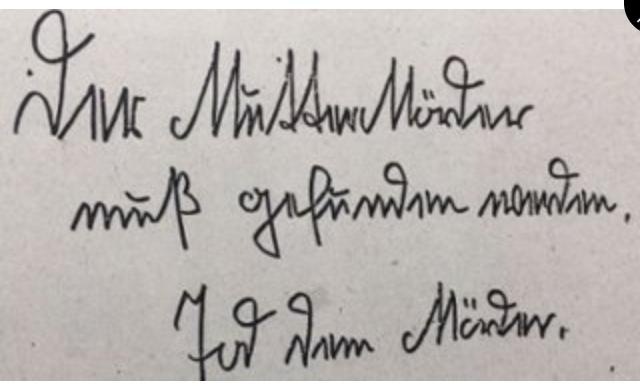 Der Mutter Mörder
muß gefunden werden.
Tod dem Mörder.